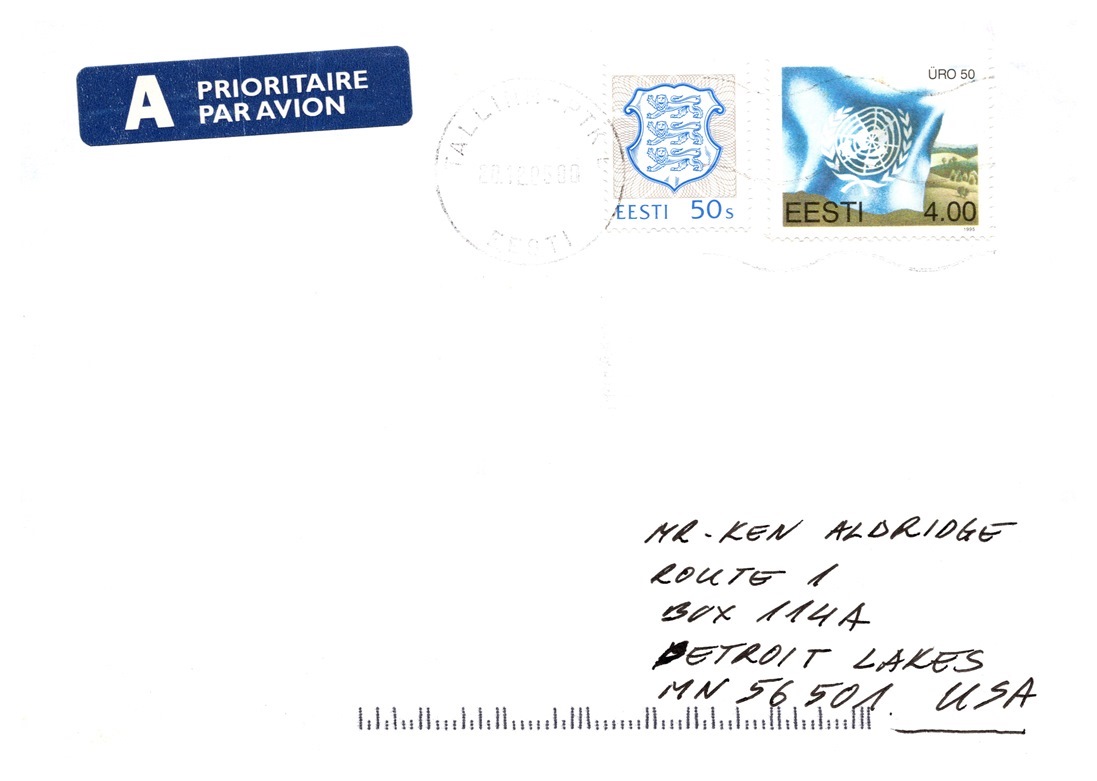 A PRIORITAIRE
PAR AVION
EESTI
EESTI 50s
ÜRO 50
EESTI 4.00
1995
MR. KEN ALDRIDGE
ROUTE 1
BOX 114A
DETROIT LAKES
MN 56501. USA